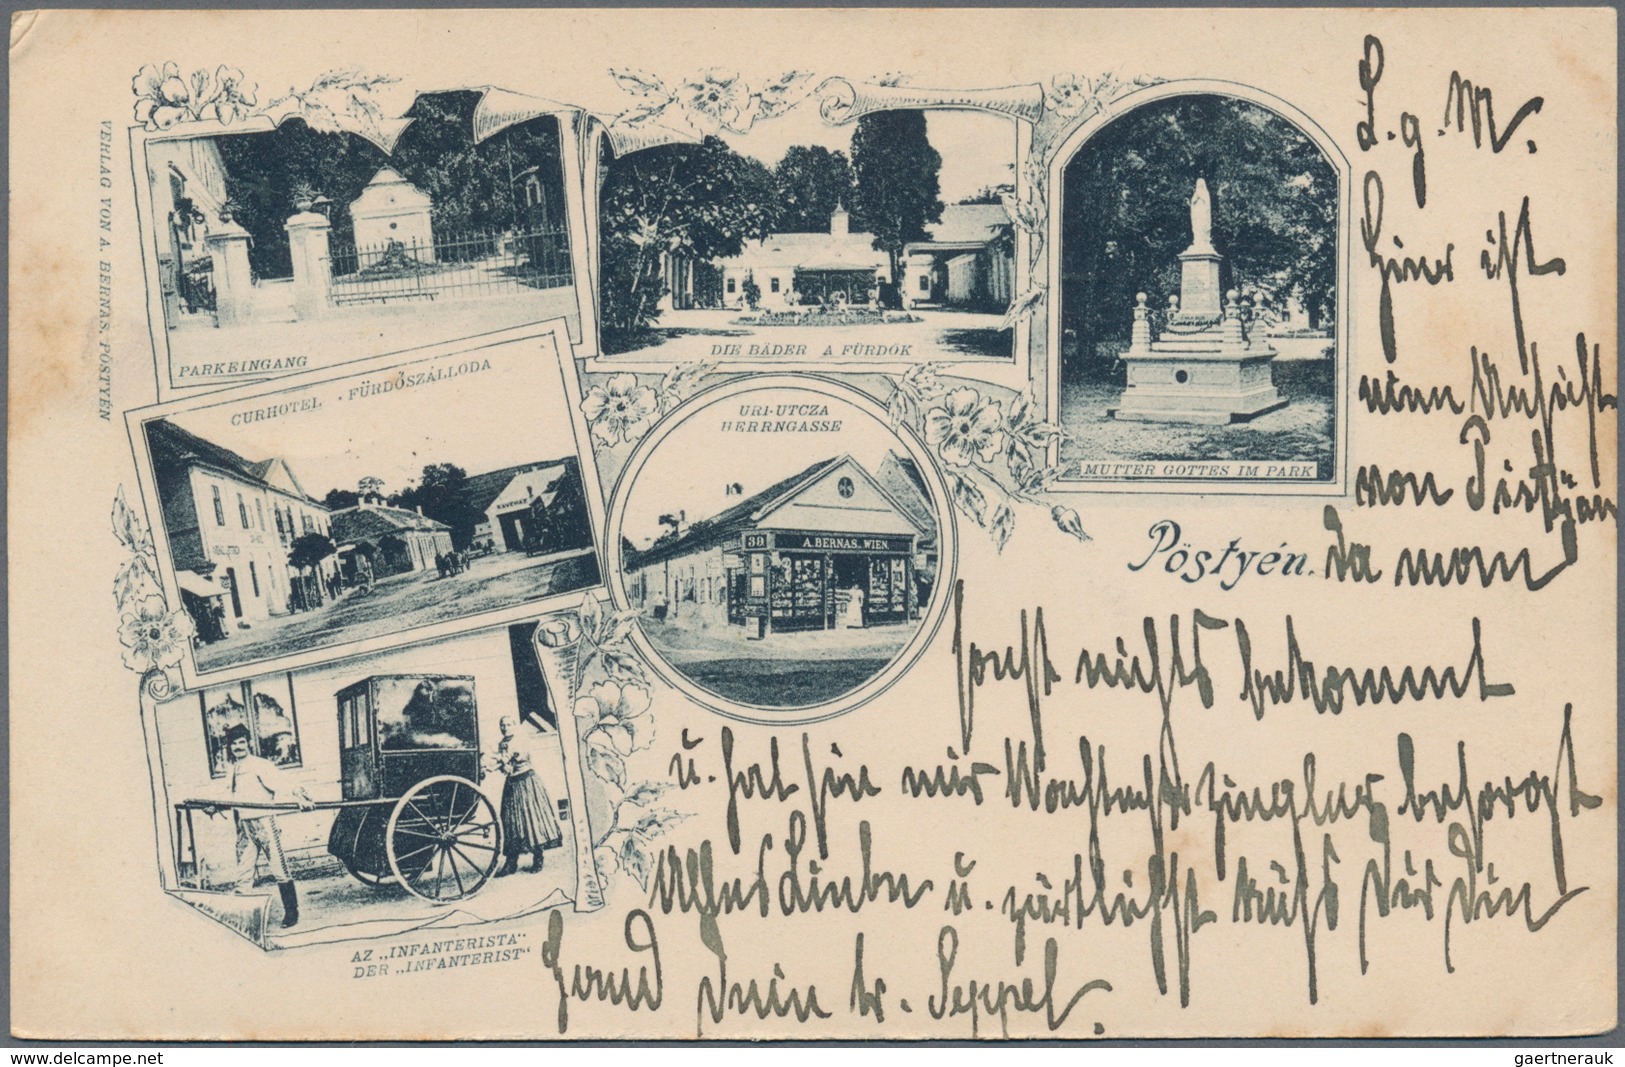 VERLAG VON A. BERNAS, PÖSTYÉN
PARKEINGANG
DIE BÄDER A FÜRDÖK
MUTTER GOTTES IM PARK
CURHOTEL - FÜRDŐSZÁLLODA
KAVEHÁZ
URI-UTCZA
HERRNGASSE
39 A. BERNAS_WIEN.
AZ „INFANTERISTA"
DER „INFANTERIST"
Pöstyén.
L. g. M.
Hier ist
eine Ansicht
von Pistyan
Da man
sonst nichts bekommt
u. hat hier nur
besorgt
Alles Liebe u. zärtlichst küßt Dir die
Hand Dein tr. Seppel.
delcampe.net
gaertnerauk